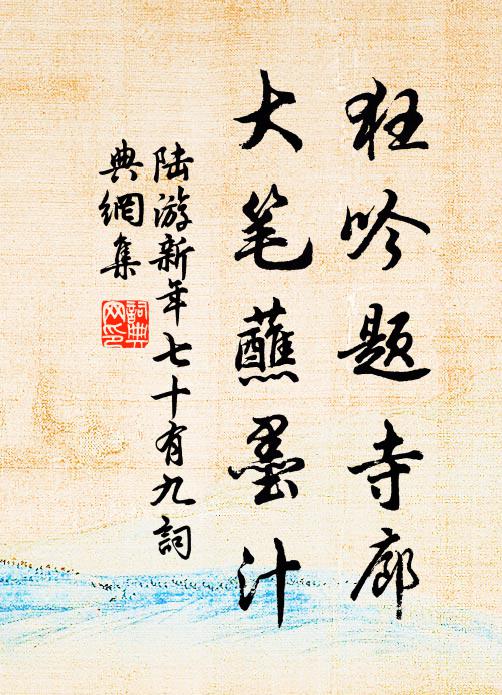 狂吟题寺廊
大笔蘸墨汁
陆游新年七十有九詞
典網集
詞典
网印